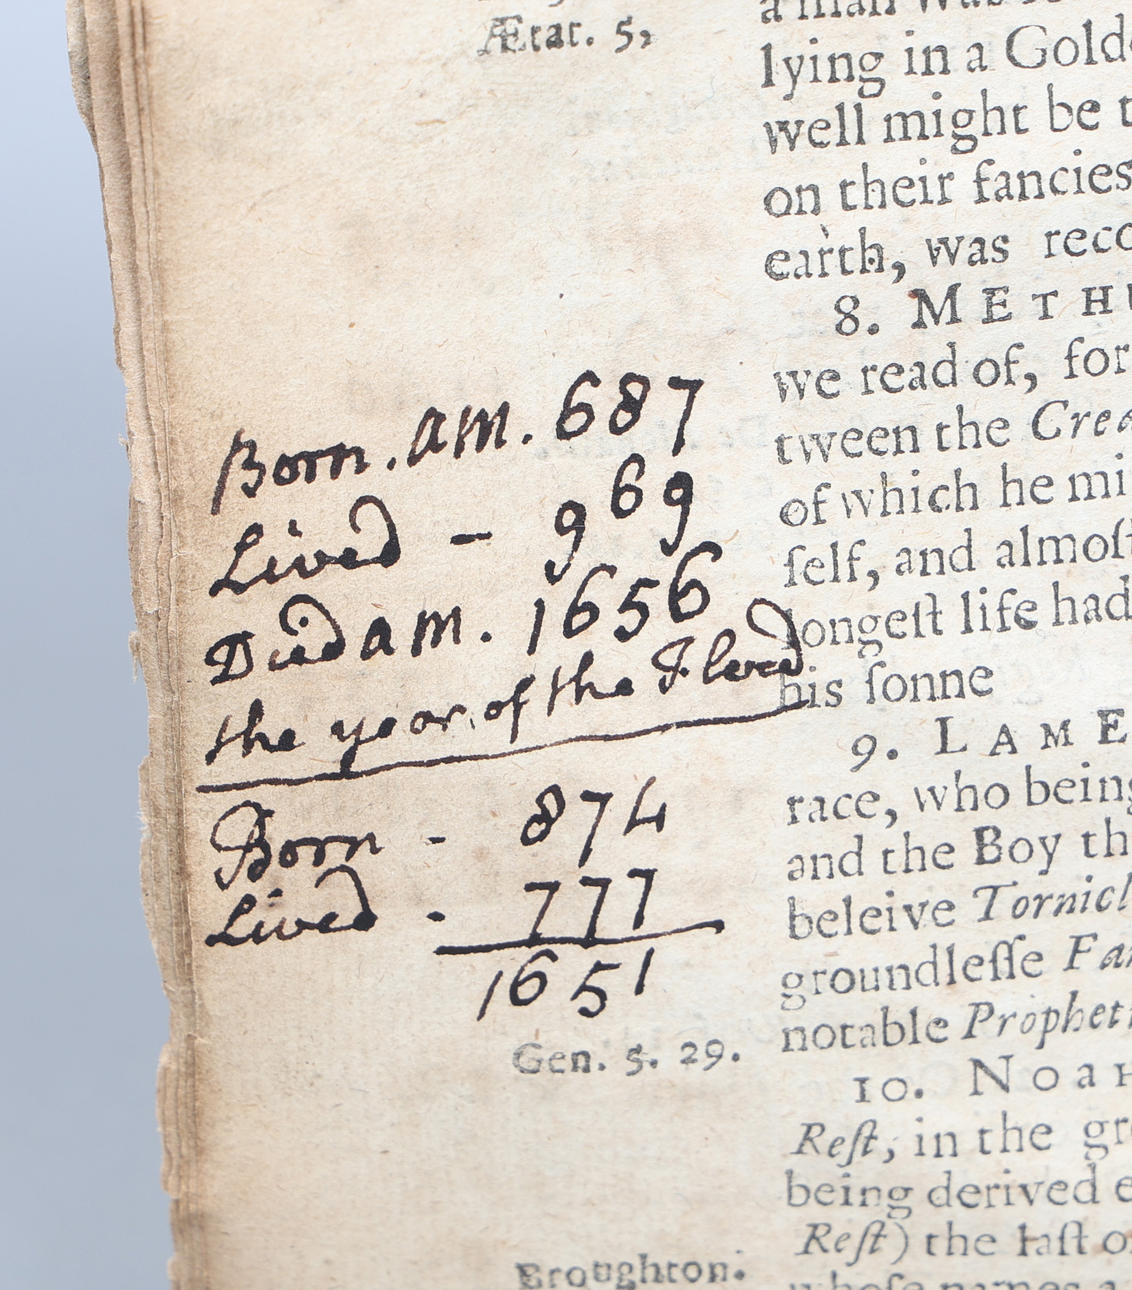 Ætat. 5,
Born. am. 687
Lived - 969
Died am. 1656
the year of the Flood
Born - 874
Lived - 777
1651
Gen. 5. 29.
Broughton.
a man was
lying in a Gold
well might be t
on their fancies
earth, was reco
8. METHU
we read of, for
tween the Crea
of which he mi
ſelf, and almoſt
longeſt life had
his ſonne
9. LAME
race, who being
and the Boy th
beleive Torniel
groundleſſe Fan
notable Propheti
10. NOAH
Reſt, in the gr
being derived e
Reſt) the laſt o
whoſe names a